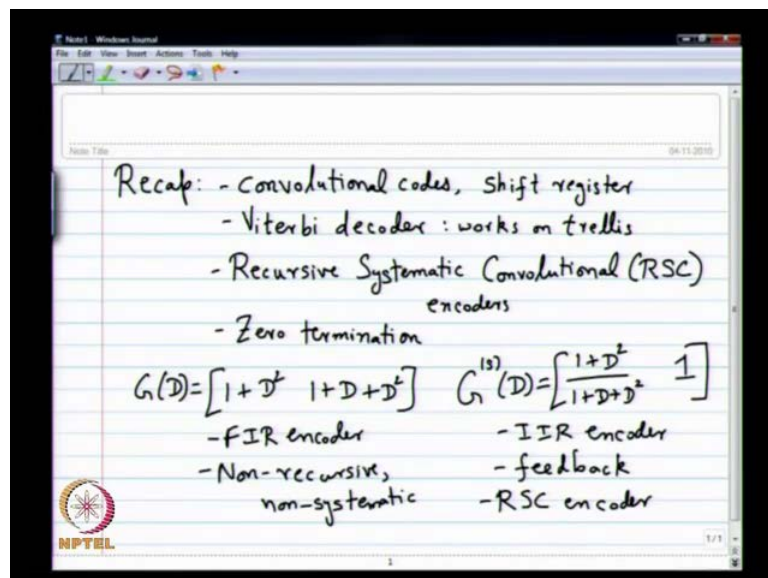 Note1 - Windows Journal
File Edit View Insert Actions Tools Help
Note Title
04-11-2010
Recap: - Convolutional codes, Shift register
- Viterbi decoder : works on trellis
- Recursive Systematic Convolutional (RSC)
encoders
- Zero termination
G(D)=[1+D² 1+D+D²] G⁽ˢ⁾(D)=[(1+D²)/(1+D+D²) 1]
- FIR encoder - IIR encoder
- Non-recursive, - feedback
non-systematic - RSC encoder
NPTEL
1/1
1